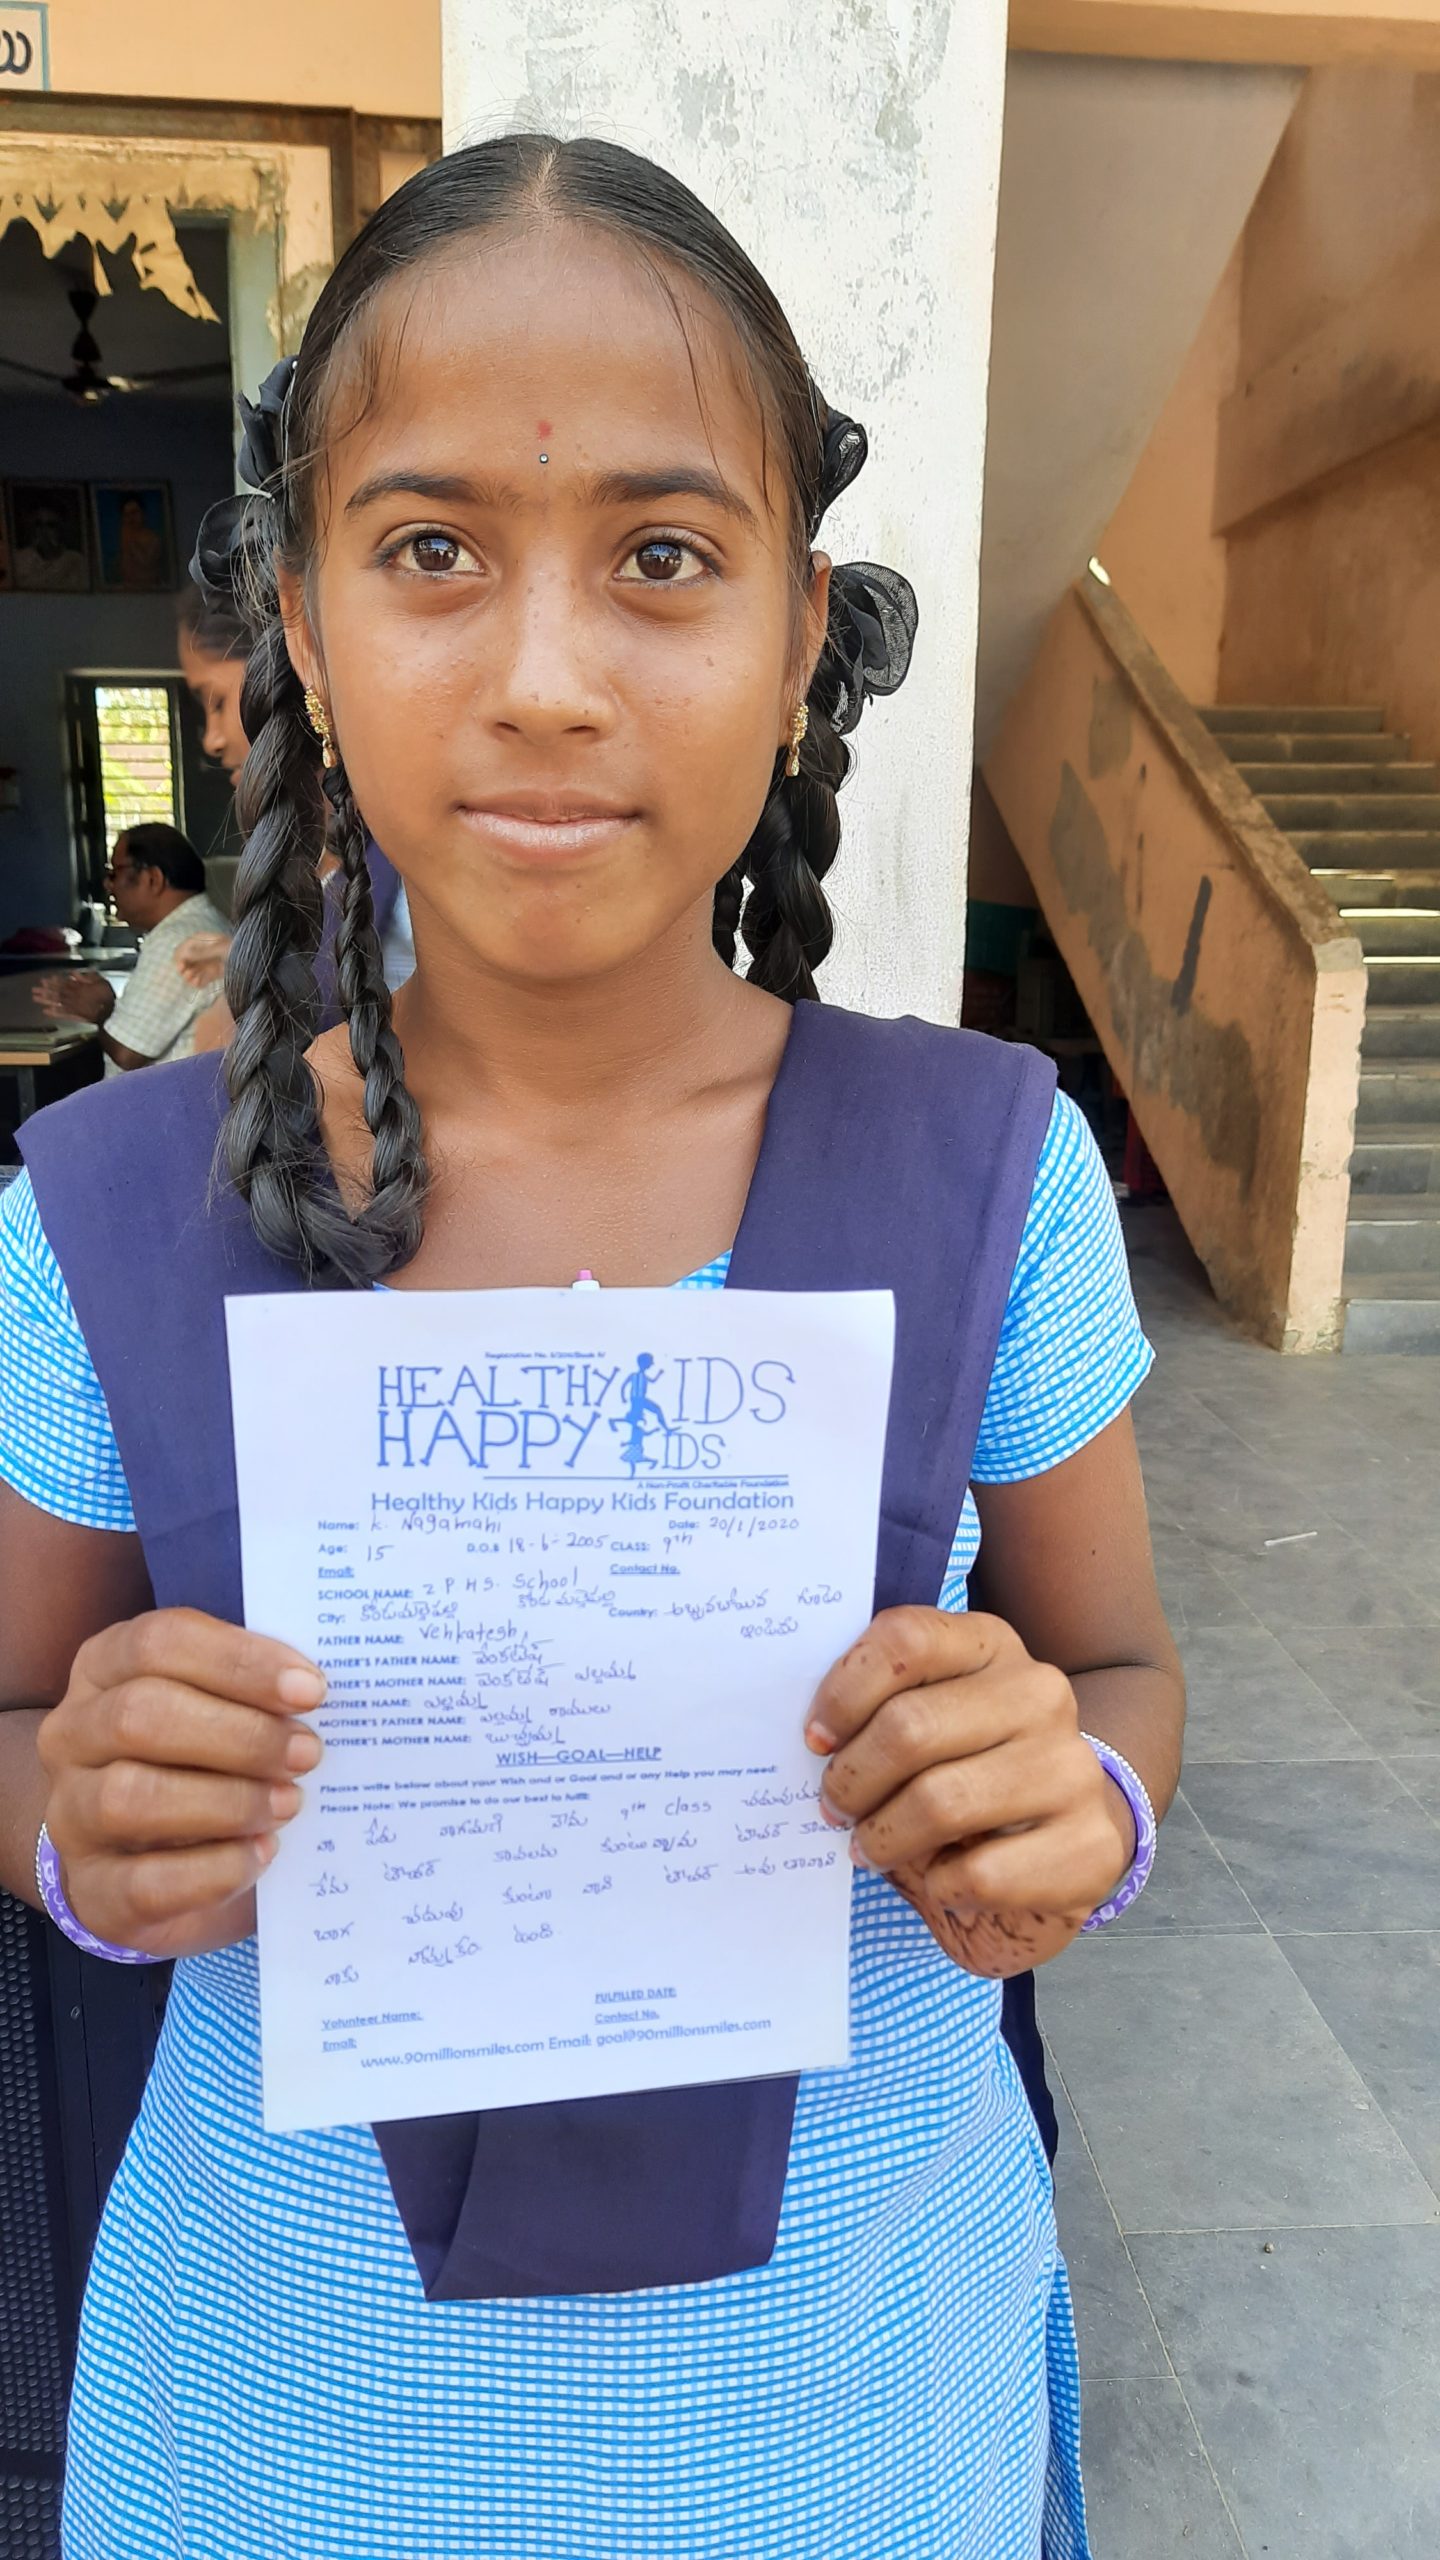 Registration No.
HEALTHY KIDS
HAPPY KIDS
A Non-Profit Charitable Foundation
Healthy Kids Happy Kids Foundation
Name: K. Nagamani Date: 20/1/2020
Age: 15 D.O.B 18-6-2005 CLASS: 9th
Email: Contact No.
SCHOOL NAME: Z P H S. School
City: Country: ఇండియ
FATHER NAME: Venkatesh
FATHER'S FATHER NAME: వెంకటేష్
FATHER'S MOTHER NAME: వెంకటేష్ ఎల్లమ్మ
MOTHER NAME: ఎల్లమ్మ
MOTHER'S FATHER NAME: ఎల్లమ్మ రాములు
MOTHER'S MOTHER NAME: బుచ్చమ్మ
WISH—GOAL—HELP
Please write below about your Wish and or Goal and or any Help you may need:
Please Note: We promise to do our best to fulfill:
నా పేరు నాగమణి నేను 9th class
నేను టీచర్ కావలను కుంటున్నాను టీచర్
బాగ చదువు కుంటా నాని టీచర్
నాకు నమ్మకం ఉంది.
FULFILLED DATE:
Volunteer Name: Contact No.
Email:
www.90millionsmiles.com Email: goal@90millionsmiles.com